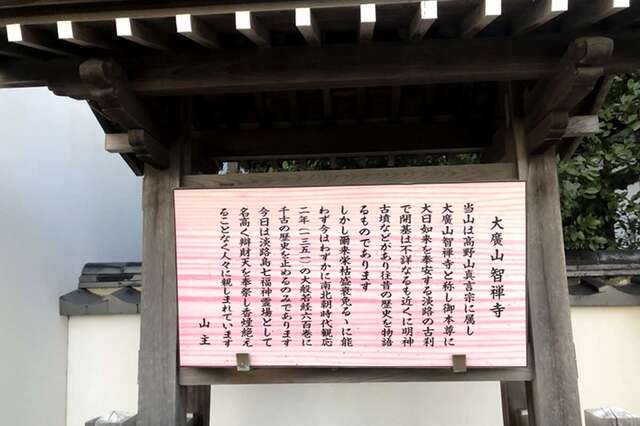 大廣山 智禅寺
当山は高野山真言宗に属し
大廣山智禅寺と称し御本尊に
大日如来を奉安する淡路の古刹
で開基は不詳なるも近くに明神
古墳などがあり往昔の歴史を物語
るものであります
しかし爾来栄枯盛衰免るゝに能
わず今はわずかに南北朝時代観応
二年(一三五一)の大般若経六百巻に
千古の歴史を止めるのみであります
今日は淡路島七福神霊場として
名高く辯財天を奉祭し香煙絶え
ることなく人々に親しまれています
山主